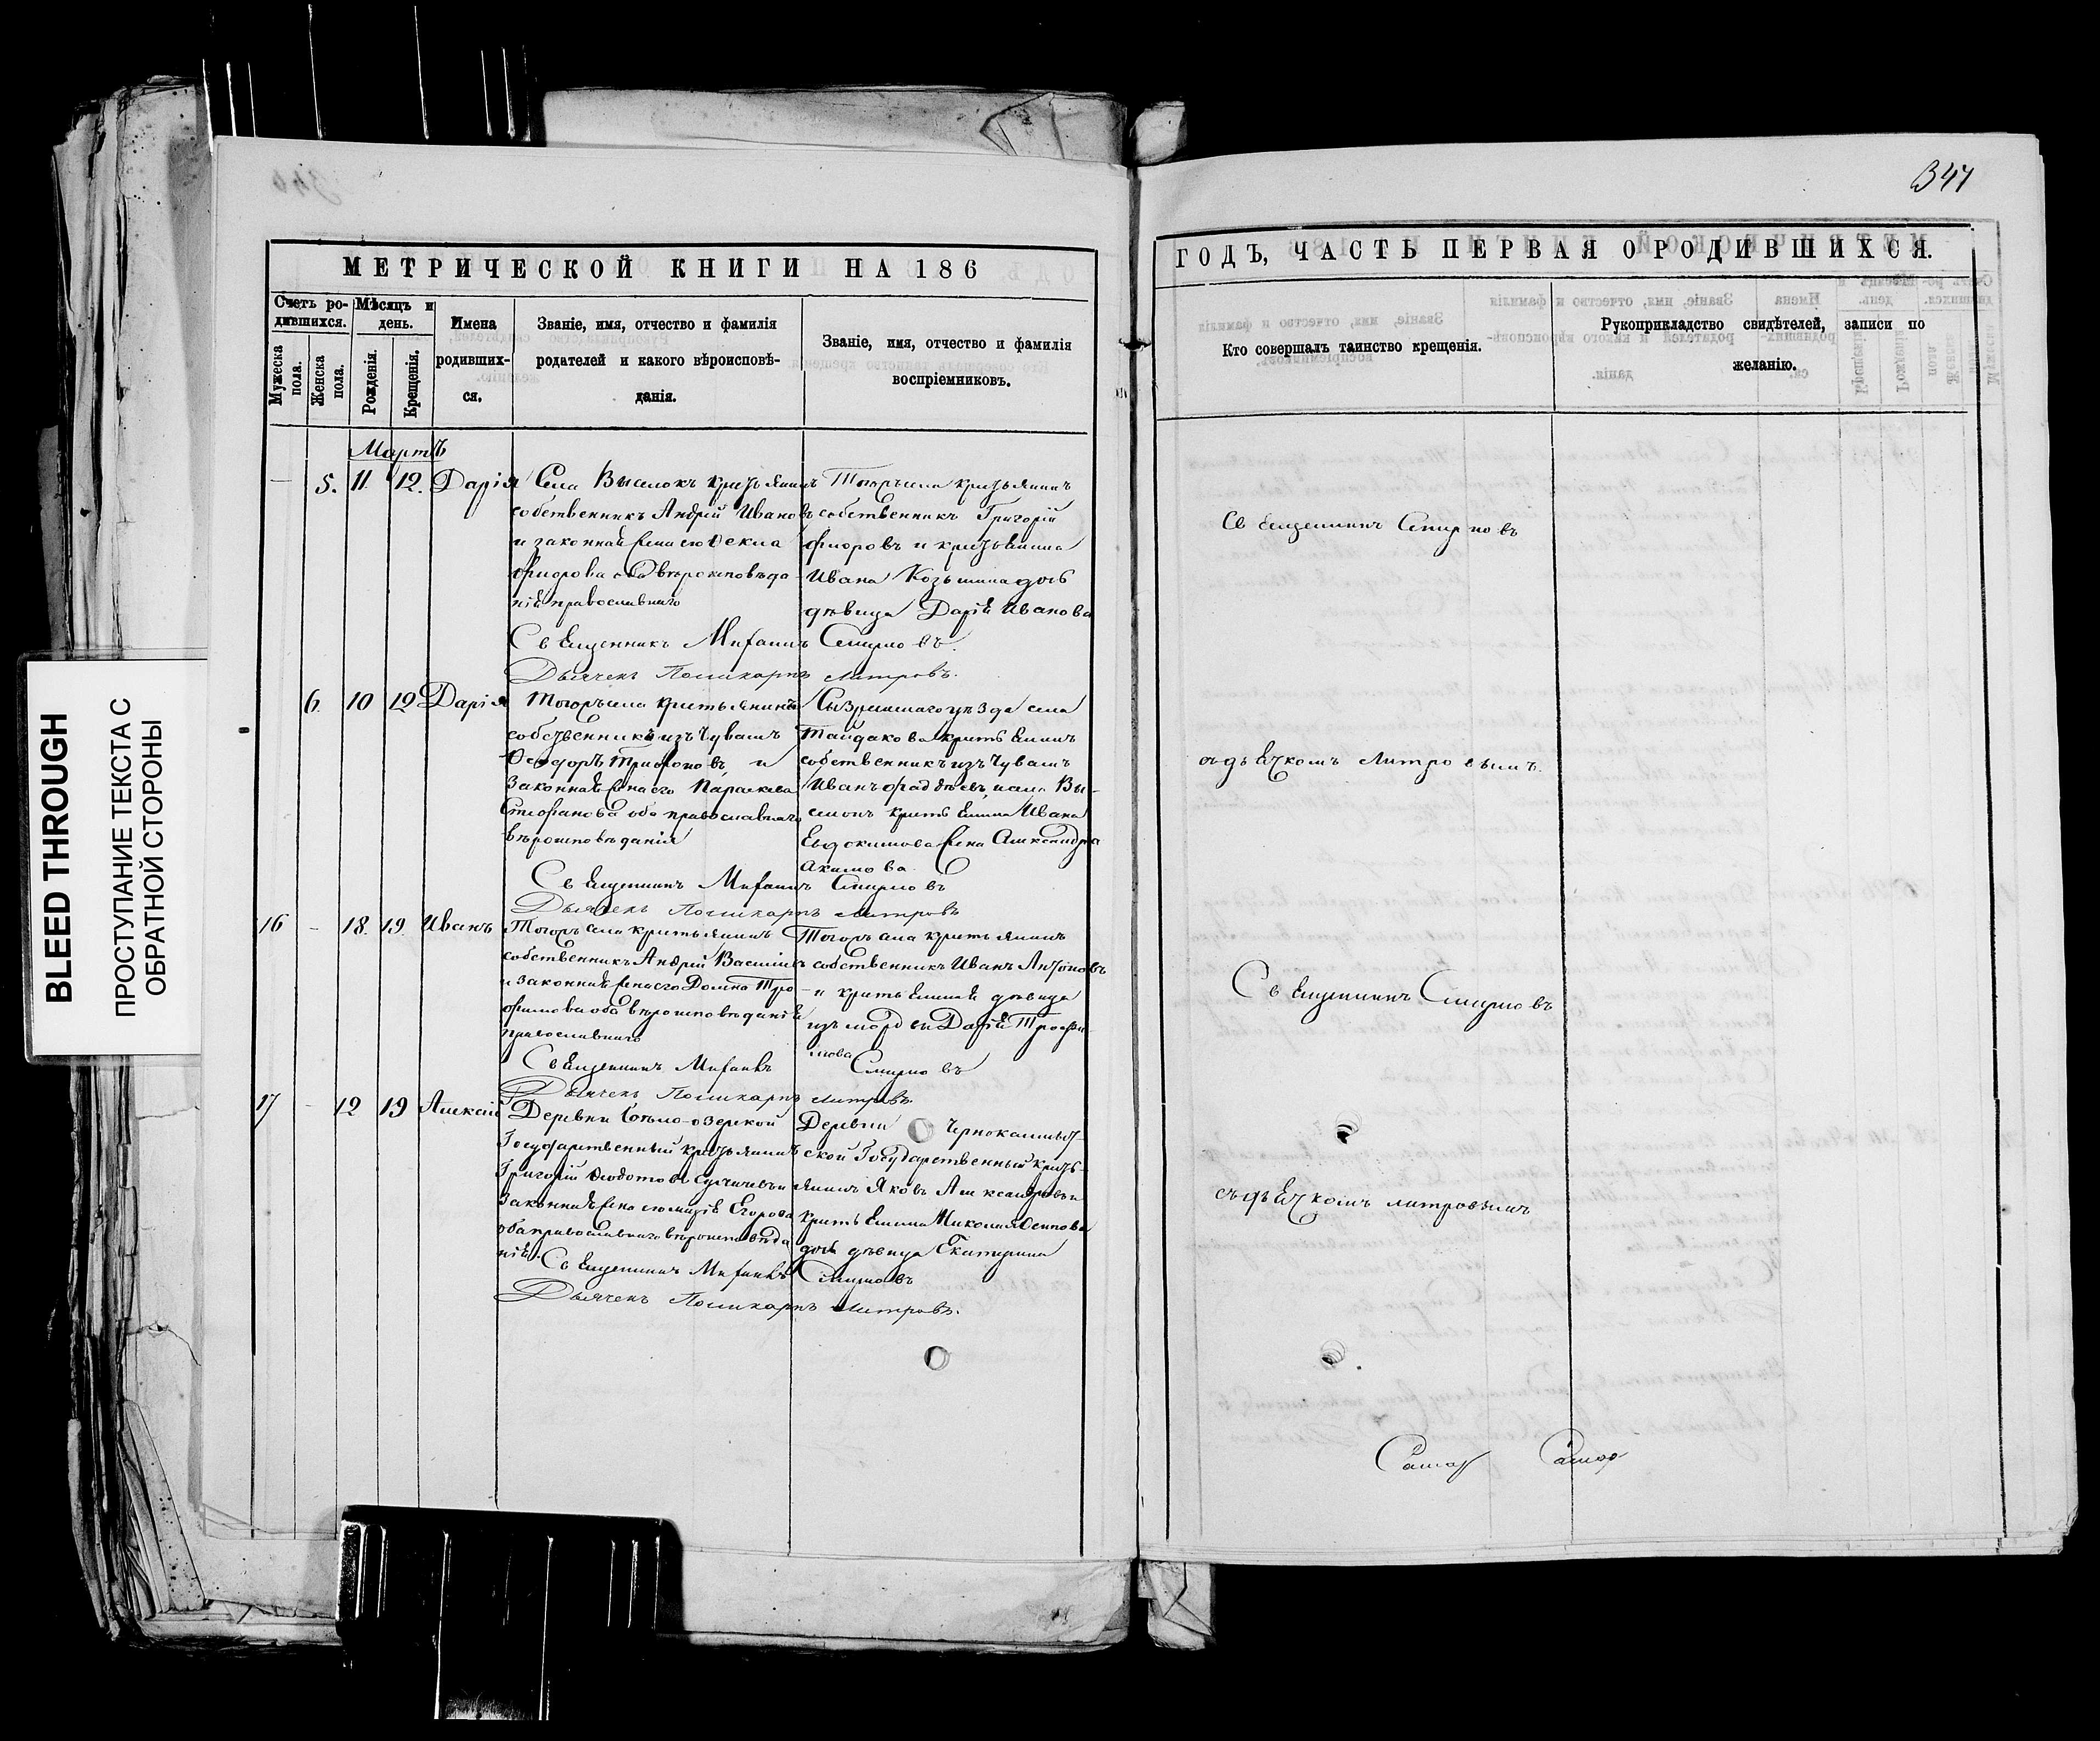 BLEED THROUGH
ПРОСТУПАНИЕ ТЕКСТА С
ОБРАТНОЙ СТОРОНЫ
МЕТРИЧЕСКОЙ КНИГИ НА 186
Счетъ ро-
дившихся.
Мѣсяцъ и
день.
Мужеска
пола.
Женска
пола.
Рожденія.
Крещенія.
Имена
родивших-
ся.
Званіе, имя, отчество и фамилія
родителей и какого вѣроисповѣ-
данія.
Званіе, имя, отчество и фамилія
воспріемниковъ.
Мартъ
— 5. 11. 12. Дарія
Села Выселокъ крестьянинъ
собственникъ Андрій Ивановъ
и законная жена его Фекла
вѣроисповѣда-
нія православнаго
Тогоже села крестьянинъ
собственникъ Григорій
и крестьянина
Ивана Козьмина дочь
дѣвица Дарія Иванова
Священникъ Михаилъ Смирновъ.
Дьячекъ Поликарпъ Митровъ.
6. 10 12 Дарія
Тогоже села крестьянинъ
собственникъ изъ Чувашъ
Ѳеодоръ Трифоновъ и
законная жена его Параскева
Стефанова оба православнаго
вѣроисповѣданія
Сызранскаго уѣзда села
Тайдакова крестьянинъ
собственникъ изъ Чувашъ
Иванъ Фаддѣевъ, села Вы-
селокъ крестьянина Ивана
Евдокимова жена Александра
Акимова.
Священникъ Михаилъ Смирновъ
Дьячекъ Поликарпъ Митровъ
16 – 18. 19. Иванъ
Тогоже села крестьянинъ
собственникъ Андрій Васильевъ
и законная жена его Домна Тро-
фимова оба вѣроисповѣданія
православнаго
Тогоже села крестьянинъ
собственникъ Иванъ Антоновъ
и крестьянская дѣвица
изъ мордвы Дарія Трофи-
мова
Священникъ Михаилъ Смирновъ
Дьячекъ Поликарпъ Митровъ.
17 – 12 19 Алексій
Деревни
Государственный крестьянинъ
Григорій и
законная жена его Марія Егорова
оба православнаго вѣроисповѣда-
нія.
Деревни
ской Государственный кресть-
янинъ Яковъ Александровъ и
крестьянина Николая Осипова
дочь дѣвица Екатерина
Священникъ Михаилъ Смирновъ
Дьячекъ Поликарпъ Митровъ.
347
ГОДЪ, ЧАСТЬ ПЕРВАЯ О РОДИВШИХСЯ.
Кто совершалъ таинство крещенія.
Рукоприкладство свидѣтелей, записи по
желанію.
Священникъ Смирновъ
съ дьячкомъ Митровымъ.
Священникъ Смирновъ
съ дьячкомъ Митровымъ